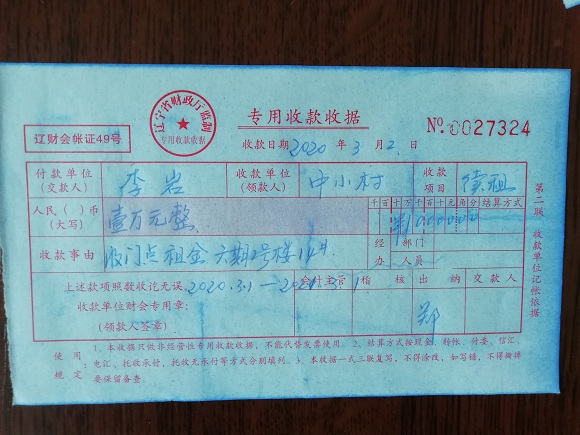 辽宁省财政厅监制
专用收款收据
辽财会帐证49号
专用收款收据
No.0027324
收款日期2020年3月2日
付款单位(交款人) 李岩 收款单位(领款人) 中小村 收款项目
人民( )币(大写) 壹万元整 千百十万千百十元角分 结算方式
收款事由 租金 六期2号楼
经办 部门 人员
上述款项照数收讫无误。2020.3.1—
会计主管 稽核 出纳 交款人
收款单位财会专用章:
(领款人签章) 郑
第二联 收款单位记帐依据
使用规定 1、本收据只做非经营性专用收款收据,不能代替发票使用。2、结算方式按现金、转帐、付委、信汇、
电汇、托收承付,托收无承付等方式分别填列。3、本收据一式三联复写,不得涂改,如写错,不得撕掉
要保留备查。